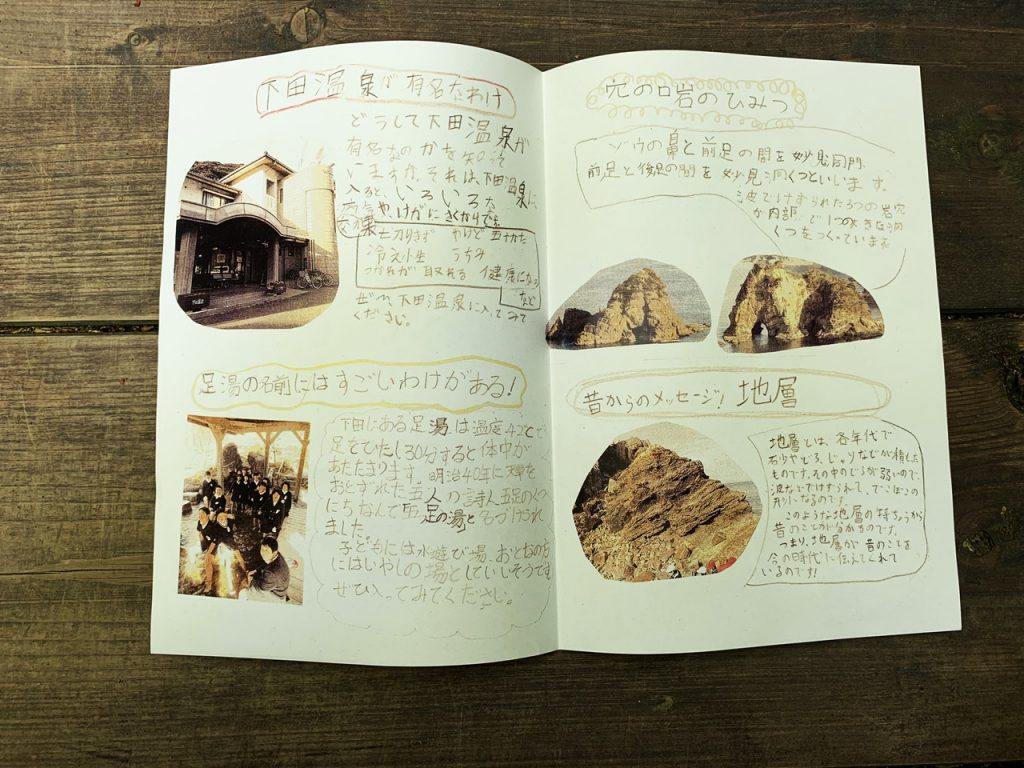 下田温泉が有名なわけ
どうして下田温泉が
有名なのかを知って
いますか。それは、下田温泉に
入ると、いろいろな
やけがにきくからでも
切りきず やけど 五十かた
冷え性 うちみ
つかれが取れる 健康になる
など
ぜひ、下田温泉に入ってみて
ください。
足湯の名前にはすごいわけがある!
下田にある足湯は温度42℃で
足をひたし30分すると体中が
あたたまります。明治40年に
おとずれた五人の詩人五足のくつ
にちなんで五足の湯と名づけられ
ました。
子どもには水遊び場、おとなの方
にはいやしの場としていいそうです
ぜひ入ってみてください。
穴の口岩のひみつ
ゾウの鼻と前足の間を妙見洞門、
前足と後足の間を妙見洞くつといいます。
波でけずられた3つの岩穴
が内部で1つの大きな洞
くつをつくっています
昔からのメッセージ! 地層
地層とは、各年代で
石やどろ、じゃりなどが積もした
ものです。その中のどろが弱いので、
波などでけずられて、でこぼこの
形になるのです。
このような地層の特ちょうから
昔のことが分かるのです。
つまり、地層が昔のことを
今の時代に伝えてくれて
いるのです!